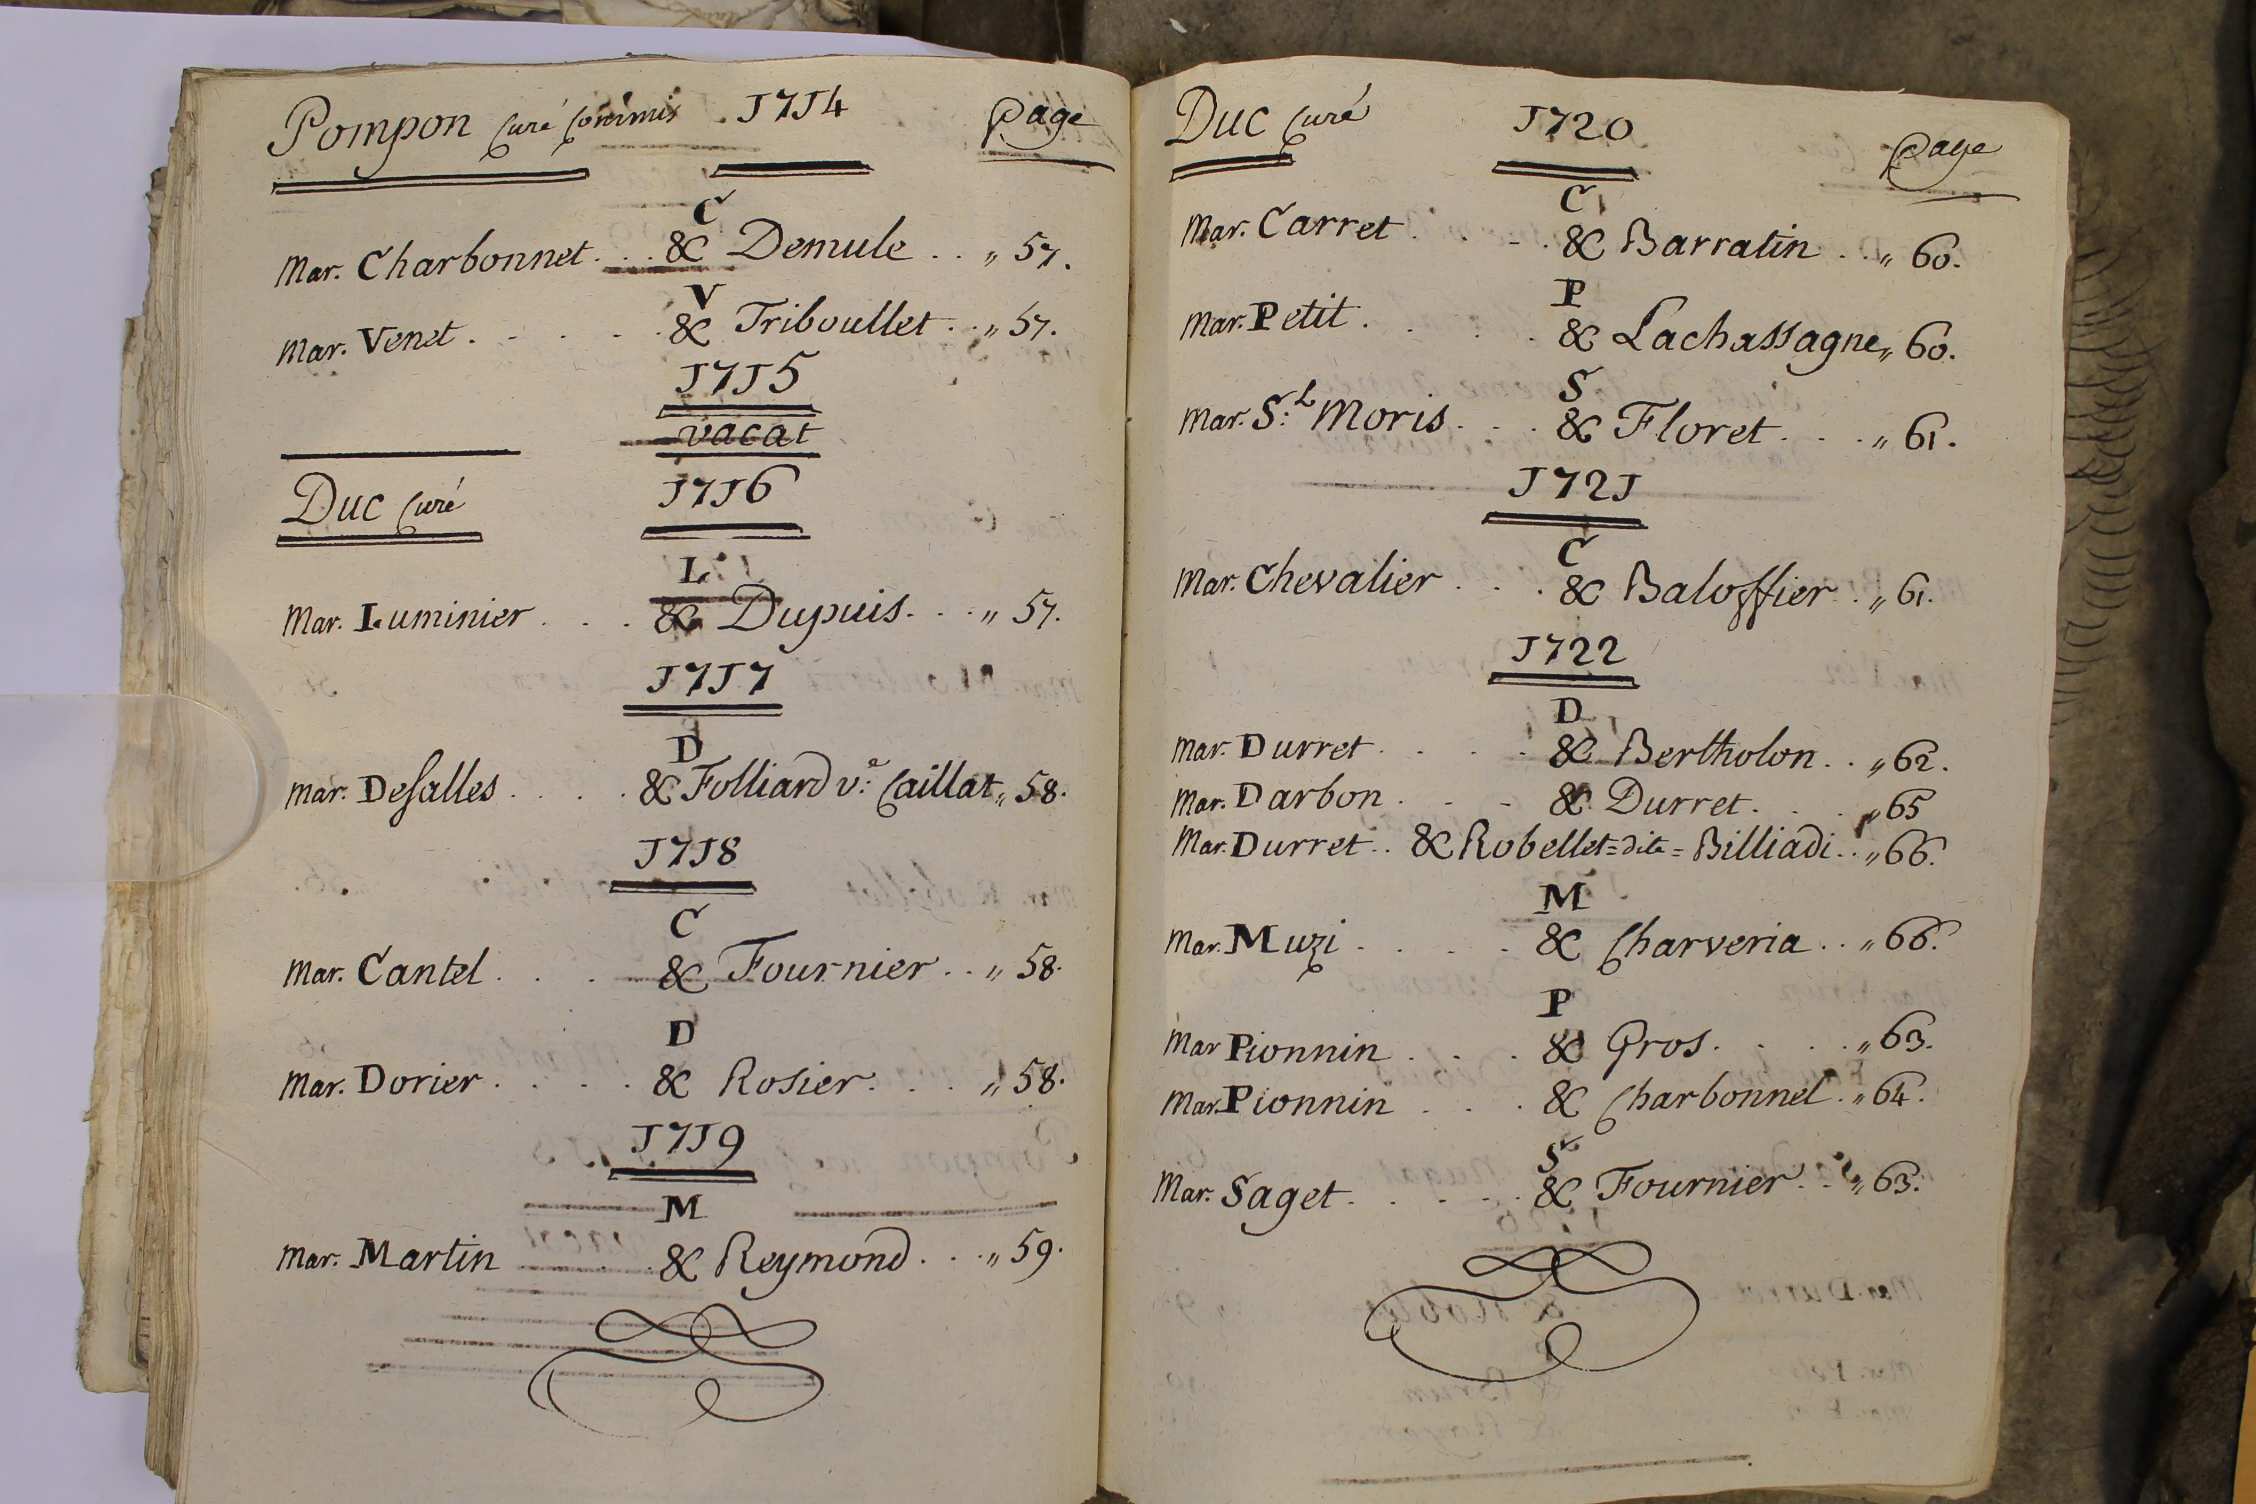 Pompon Curé 1714 Page
C
Mar. Charbonnet . . . & Demule . . „ 57.
V
Mar. Venet . . . . . & Triboullet . . „ 57.
1715
vacat
Duc Curé 1716
L
Mar. Luminier . . . & Dupuis . . . „ 57.
1717
D
Mar. Desalles . . . . & Folliard v.e Caillat „ 58.
1718
C
Mar. Cantel . . . & Fournier . . „ 58.
D
Mar. Dorier . . . . & Rosier . . . „ 58.
1719
M
Mar. Martin . . . & Reymond . . . „ 59.
Duc Curé 1720 Page
C
Mar. Carret . . . . & Barratin . . „ 60.
P
Mar. Petit . . . . & Lachassagne „ 60.
S
Mar. S:t Moris . . . & Floret . . . „ 61.
1721
C
Mar. Chevalier . . . & Baloffier . „ 61.
1722
D
Mar. Durret . . . . & Bertholon . . „ 62.
Mar. Darbon . . . & Durret . . . „ 65
Mar. Durret . . & Robellet = dite = Billiadi . . „ 66.
M
Mar. Muzi . . . . & Charveria . . „ 66.
P
Mar Pionnin . . . . & Gros . . . . „ 63.
Mar. Pionnin . . . . & Charbonnel . „ 64.
S
Mar. Saget . . . . . & Fournier . . „ 63.